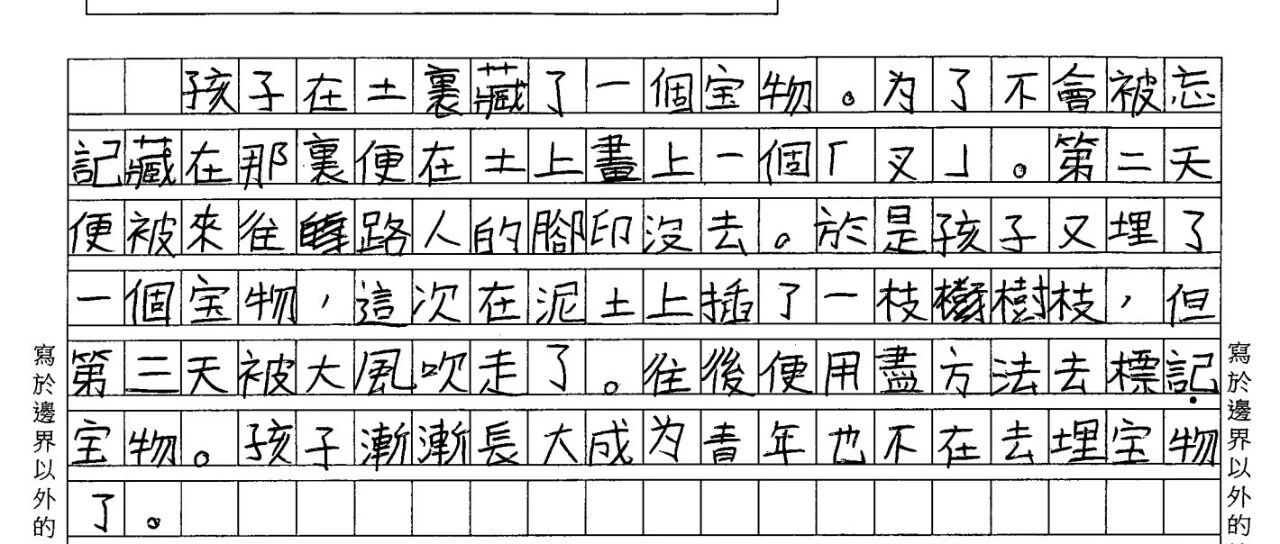 孩子在土裏藏了一個宝物。为了不會被忘
記藏在那裏便在土上畫上一個「叉」。第二天
便被來往路人的腳印沒去。於是孩子又埋了
一個宝物，這次在泥土上插了一枝樹枝，但
第三天被大風吹走了。往後便用盡方法去標記
宝物。孩子漸漸長大成为青年也不在去埋宝物
了。
寫於邊界以外的
寫於邊界以外的